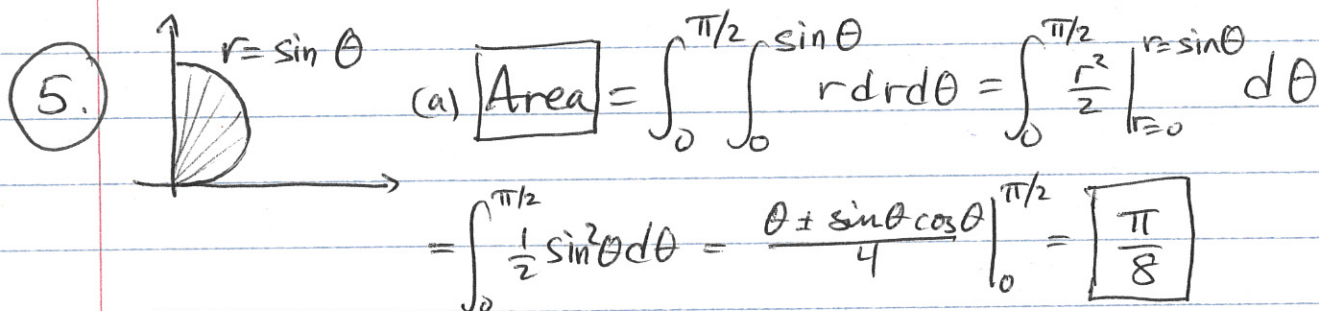 5. r = sin θ (a) Area = ∫₀^{π/2} ∫₀^{sin θ} r dr dθ = ∫₀^{π/2} r²/2 |_{r=0}^{r=sin θ} dθ
= ∫₀^{π/2} 1/2 sin²θ dθ = (θ ± sin θ cos θ)/4 |₀^{π/2} = π/8